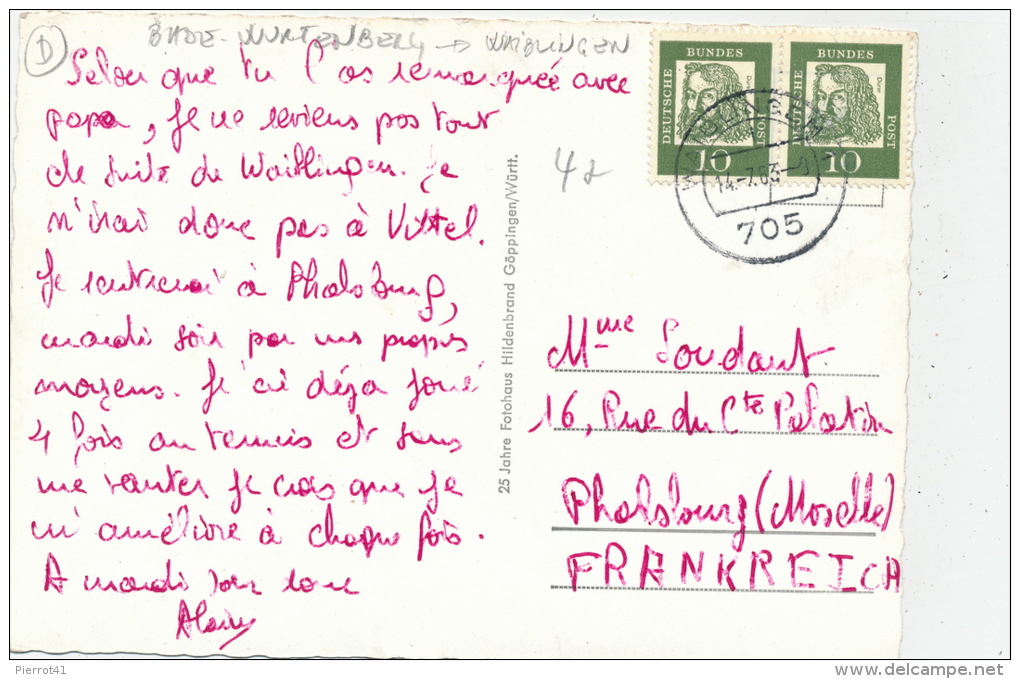 D
BADE-WURTENBERG → WAIBLINGEN
Selon que tu l'as remarquée avec
papa, je ne reviens pas tout
de suite de Waiblingen. Je
n'irai donc pas à Vittel.
Je rentrerai à Phalsbourg,
mardi soir par mes propres
moyens. Je ai déja joué
4 fois au tennis et sans
me vanter je crois que je
m'améliore à chaque fois.
A mardi soir donc
Alain
25 Jahre Fotohaus Hildenbrand Göppingen/Württ.
DEUTSCHE BUNDES POST
Dürer
10
DEUTSCHE BUNDES POST
Dürer
10
WAIBLINGEN
14.-7.63
705
Mme Soudant
16, Rue du Cte Palatin
Phalsbourg (Moselle)
FRANKREICH
Pierrot41
www.delcampe.net